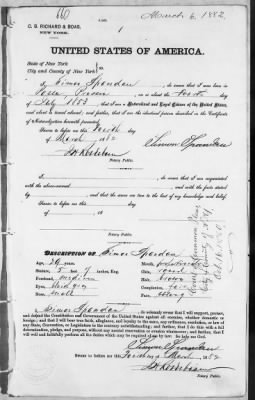 660
March 6, 1882.
C. B. RICHARD & BOAS,
NEW YORK.
1
UNITED STATES OF AMERICA.
State of New York
City and County of New York } ss.
I, Simon Spandau, do swear that I was born in
Posen Prussia, on or about the day
of July 1853, that I am a Naturalized and Loyal Citizen of the United States,
and about to travel abroad; and further, that I am the identical person described in the Certificate
of Naturalization herewith presented.
Sworn to before me this Fourth
day of March 1882
Simon Spandau
Notary Public.
I, do swear that I am acquainted
with the above-named, and with the facts stated
by that the same are true to the best of my knowledge and belief.
Sworn to before me this
day of 18
Notary Public.
DESCRIPTION OF Simon Spandau
Age, 28 years
Stature, 5 feet 7 inches, Eng.
Forehead, medium
Eyes,
Nose, small
Mouth,
Chin, round
Hair, brown
Complexion, fair
Face,
I, Simon Spandau, do solemnly swear that I will support, protect,
and defend the Constitution and Government of the United States against all enemies, whether domestic or
foreign; and that I will bear true faith, allegiance, and loyalty to the same, any ordinance, resolution, or law of
any State, Convention, or Legislature to the contrary notwithstanding; and further, that I do this with a full
determination, pledge, and purpose, without any mental reservation or evasion whatsoever; and further, that I
will well and faithfully perform all the duties which may be required of me by law. So help me God.
Simon Spandau
Sworn to before me this Fourth day March 1882
Notary Public.